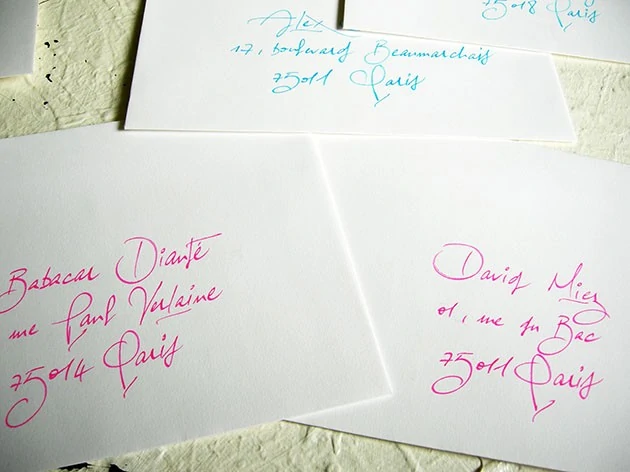 75018 Paris
Alex
17, boulevard Beaumarchais
75011 Paris
Babacar Dianté
rue Paul Verlaine
75014 Paris
David Mierz
01, rue du Bac
75011 Paris